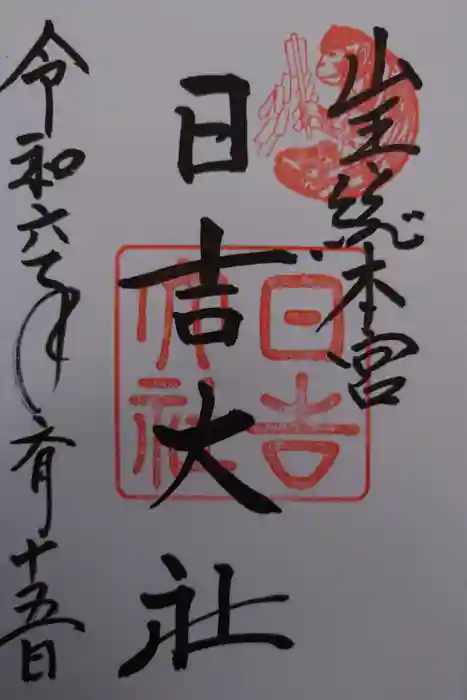 山王総本宮
日吉大社
令和六年六月十五日
日吉
大社